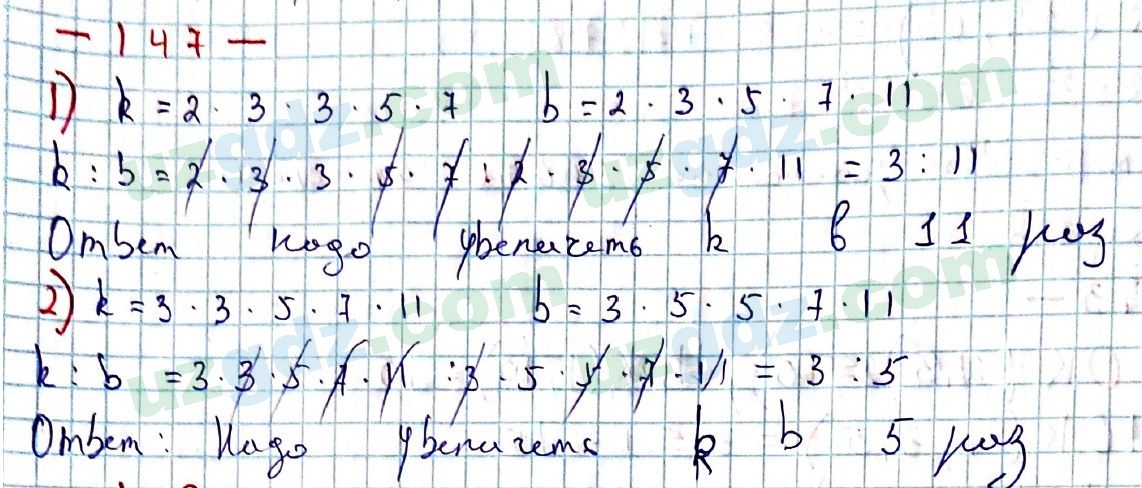 — 147 —
1) k = 2 · 3 · 3 · 5 · 7 b = 2 · 3 · 5 · 7 · 11
k : b = 2 · 3 · 3 · 5 · 7 : 2 · 3 · 5 · 7 · 11 = 3 : 11
Ответ надо увеличеть k в 11 раз
2) k = 3 · 3 · 5 · 7 · 11 b = 3 · 5 · 5 · 7 · 11
k : b = 3 · 3 · 5 · 7 · 11 : 3 · 5 · 5 · 7 · 11 = 3 : 5
Ответ: Надо увеличеть k b 5 раз
uzgdz.com
uzgdz.com
uzgdz.com
uzgdz.com